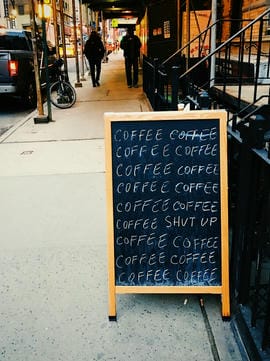 COFFEE COFFEE
COFFEE COFFEE
COFFEE COFFEE
COFFEE COFFEE
COFFEE COFFEE
COFFEE SHUT UP
COFFEE COFFEE
COFFEE COFFEE
COFFEE COFFEE